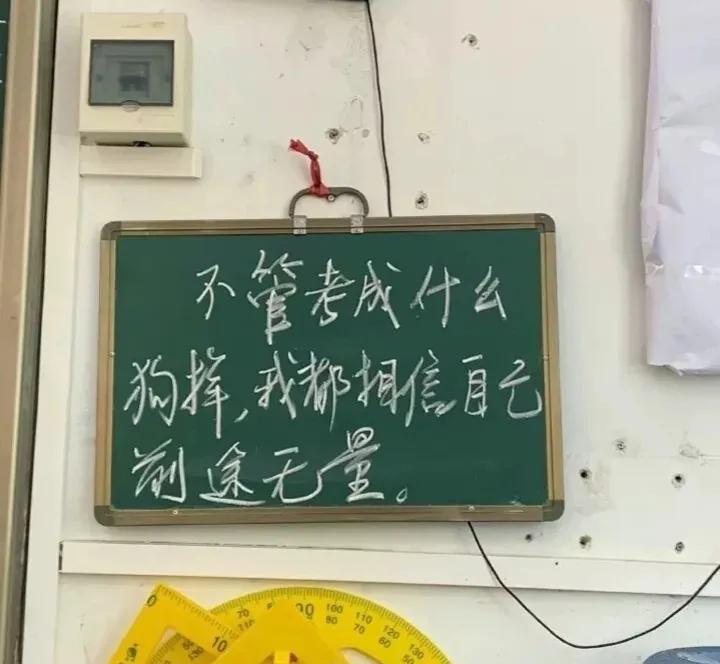 不管考成什么
狗样,我都相信自己
前途无量。
0 10
100 110 120 130
80 70 60 50